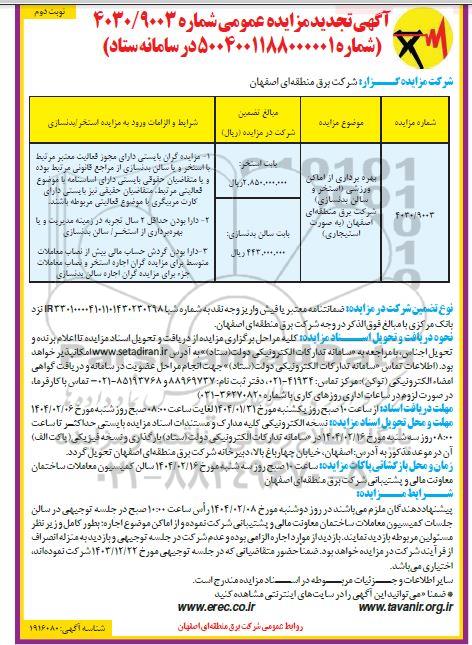 نوبت دوم
آگهی تجدید مزایده عمومی شماره ۴۰۳۰/۹۰۰۳
(شماره ۵۰۰۴۰۰۱۱۸۸۰۰۰۰۰۱ در سامانه ستاد)
شرکت مزایده گـــزار: شرکت برق منطقه‌ای اصفهان
شماره مزایده
موضوع مزایده
مبالغ تضمین شرکت در مزایده (ریال)
شرایط و الزامات ورود به مزایده استخر/بدنسازی
۴۰۳۰/۹۰۰۳
بهره برداری از اماکن
ورزشی (استخر و
سالن بدنسازی)
شرکت برق منطقه‌ای
اصفهان (به صورت
استیجاری)
بابت استخر:
۲.۸۵۰.۰۰۰.۰۰۰ریال
بابت سالن بدنسازی:
۴۴۳.۰۰۰.۰۰۰ ریال
۱- مزایده گران بایستی دارای مجوز فعالیت معتبر مرتبط
با استخر و یا سالن بدنسازی از مراجع قانونی مرتبط بوده
و یا متقاضیان حقوقی بایستی دارای اساسنامه با موضوع
فعالیتی مرتبط، متقاضیان حقیقی نیز بایستی دارای
کارت مربیگری با موضوع فعالیتی مربوطه باشند.
۲- دارا بودن حداقل ۲ سال تجربه در زمینه مدیریت و یا
بهره‌برداری از استخر/ سالن بدنسازی
۳-دارا بودن گردش حساب مالی بیش از نصاب معاملات
متوسط برای مزایده گران اجاره استخر و نصاب معاملات
جزء برای مزایده گران اجاره سالن بدنسازی
نوع تضمین شرکت در مزایده: ضمانتنامه معتبر یا فیش واریز وجه نقد به شماره شبا IR۳۳۰۱۰۰۰۰۴۱۰۱۱۰۱۴۳۰۲۳۰۲۹۸ نزد
بانک مرکزی با مبالغ فوق الذکر در وجه شرکت برق منطقه‌ای اصفهان.
نحوه دریافت و تحویل اســـناد مزایده: کلیه مراحل برگزاری مزایده از دریافت و تحویل اسناد مزایده تا اعلام برنده و
تحویل اجناس، با مراجعه به «سامانه تدارکات الکترونیکی دولت (ستاد)» به آدرس www.setadiran.ir امکانپذیر خواهد
بود. (اطلاعات تماس «سامانه تدارکات الکترونیکی دولت (ستاد)» جهت انجام مراحل عضویت در سامانه و دریافت گواهی
امضاء الکترونیکی (توکن): مرکز تماس: ۴۱۹۳۴-۰۲۱، دفتر ثبت نام: ۸۸۹۶۹۷۳۷ و ۸۵۱۹۳۷۶۸-۰۲۱- تماس با کارفرما،
در صورت لزوم در ساعات اداری روزهای کاری با شماره ۳۶۲۷۰۸۲۰-۰۳۱)
مهلت دریافت اسناد: از ساعت ۱۰ صبح روز یکشنبه مورخ ۱۴۰۴/۰۱/۳۱ لغایت ساعت ۰۸:۰۰ صبح روز شنبه مورخ ۱۴۰۴/۰۲/۰۶
مهلت و محل تحویل اسناد مزایده: نسخه الکترونیکی کلیه مدارک و مستندات اسناد مزایده بایستی حداکثر تا ساعت
۰۸:۰۰ روز سه شنبه مورخ ۱۴۰۴/۰۲/۱۶ در «سامانه تدارکات الکترونیکی دولت (ستاد) بارگذاری و نسخه فیزیکی (پاکت الف)
آن در موعد مذکور به آدرس: اصفهان، خیابان چهارباغ بالا، دبیرخانه شرکت برق منطقه‌ای اصفهان تحویل گردد.
زمان و محل بازگشائی پاکات مزایده: ساعت ۱۰ صبح روز سه شنبه مورخ ۱۴۰۴/۰۲/۱۶ سالن کمیسیون معاملات ساختمان
معاونت مالی و پشتیبانی شرکت برق منطقه‌ای اصفهان
شـــرایط مـــزایده:
پیشنهاددهندگان ملزم می‌باشند در روز دوشنبه مورخ ۱۴۰۴/۰۲/۰۸ رأس ساعت ۱۰:۰۰ صبح در جلسه توجیهی در سالن
جلسات کمیسیون معاملات ساختمان معاونت مالی و پشتیبانی شرکت نموده و از اماکن موضوع اجاره: بطور کامل و زیر نظر
مسئولین مربوطه بازدید نمایند. بازدید از موارد اجاره الزامی بوده و عدم شرکت در جلسه توجیهی و بازدید به منزله انصراف
از فرآیند شرکت در مزایده خواهد بود. ضمنا حضور متقاضیانی که در جلسه توجیهی مورخ ۱۴۰۳/۱۲/۲۲ شرکت نموده‌اند،
اختیاری می‌باشد.
سایر اطلاعات و جـــزئیات مربـــوطه در اســـناد مزایده مندرج است.
* ضمنا «می‌توانید این آگهی را در سایت‌های اینترنتی مشاهده کنید
www.tavanir.org.ir
www.erec.co.ir
روابط عمومی شرکت برق منطقه‌ای اصفهان
شناسه آگهی: ۱۹۱۶۰۸۰